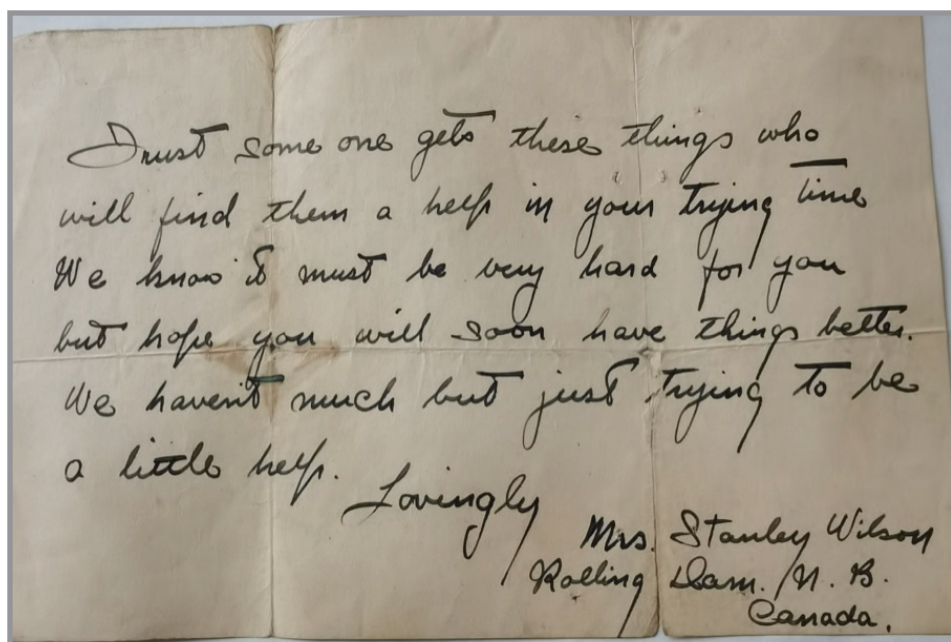 Trust some one gets these things who
will find them a help in your trying time
We know it must be very hard for you
but hope you will soon have things better.
We haven't much but just trying to be
a little help.
Lovingly
Mrs. Stanley Wilson
Rolling Dam. N. B.
Canada.